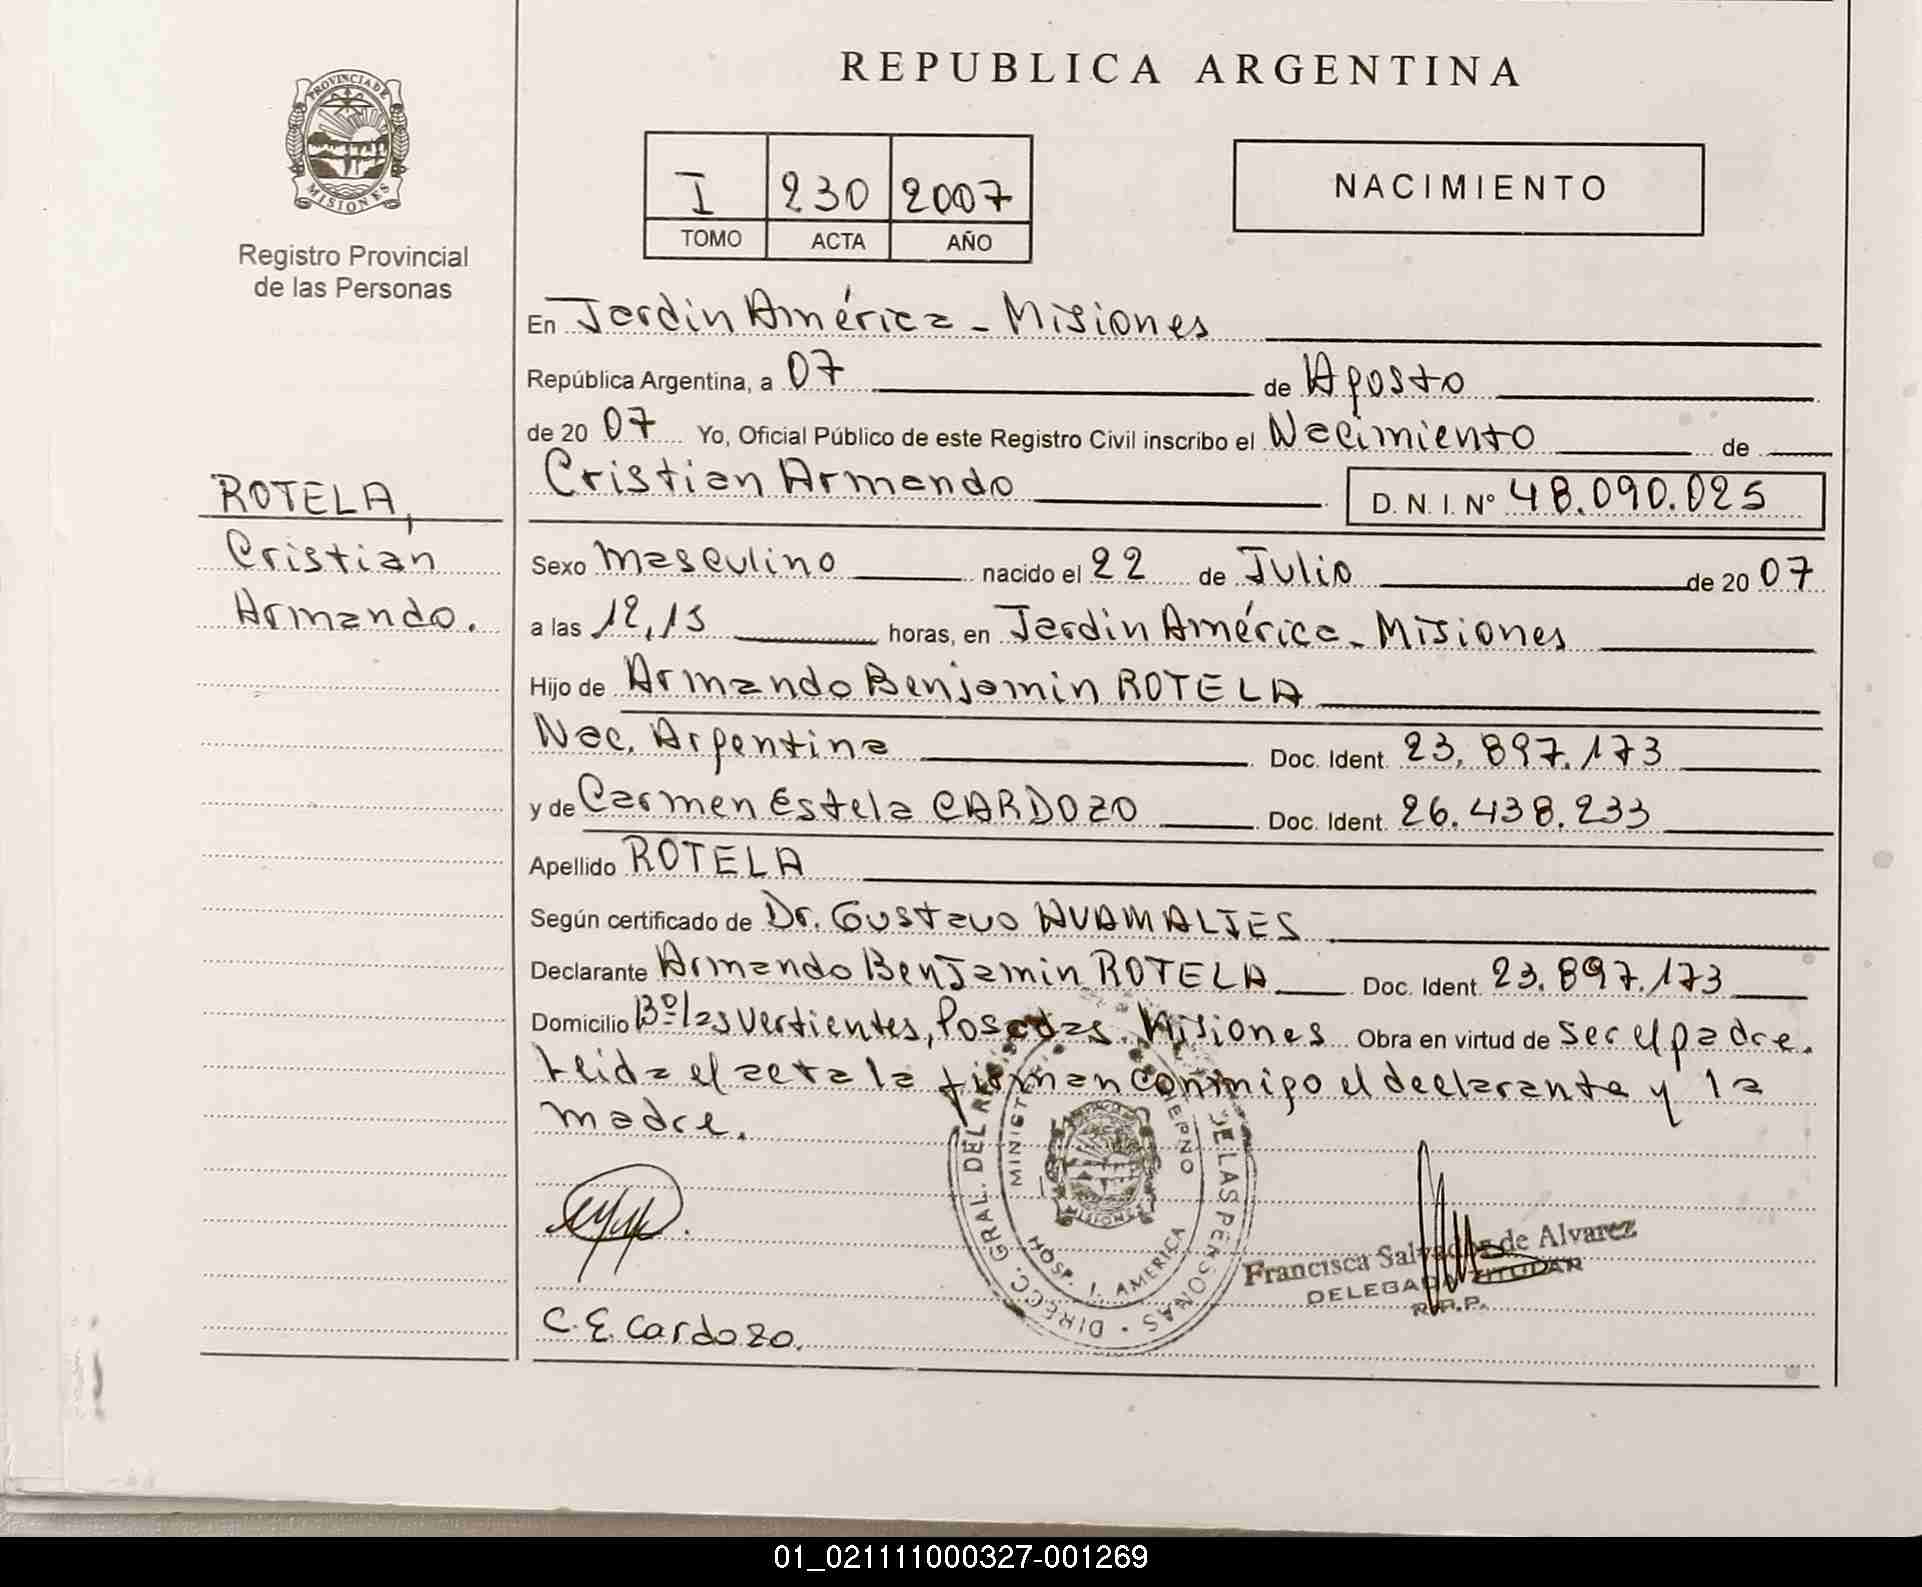 REPUBLICA ARGENTINA
PROVINCIA DE MISIONES
Registro Provincial
de las Personas
I 230 2007
TOMO ACTA AÑO
NACIMIENTO
En Jardin América - Misiones
República Argentina, a 07 de Agosto
de 20 07 Yo, Oficial Público de este Registro Civil inscribo el Nacimiento de
Cristian Armando D. N. I. Nº 48.090.025
ROTELA,
Cristian
Armando.
Sexo Masculino nacido el 22 de Julio de 20 07
a las 12,15 horas, en Jardin América - Misiones
Hijo de Armando Benjamin ROTELA
Nac. Argentina Doc. Ident. 23.897.173
y de Carmen Estela CARDOZO Doc. Ident. 26.438.233
Apellido ROTELA
Según certificado de Dr. Gustavo HUAMALIES
Declarante Armando Benjamin ROTELA Doc. Ident. 23.897.173
Domicilio Bº las Vertientes, Posadas. Misiones Obra en virtud de ser el padre.
Leida el acta la firman conmigo el declarante y la
madre.
DIRECC. GRAL. DEL DE LAS PERSONAS
HOSP. J. AMERICA
MISIONES
Francisca de Alvarez
DELEGADA TITULAR
R.P.P.
C. E. Cardozo.
01_021111000327-001269